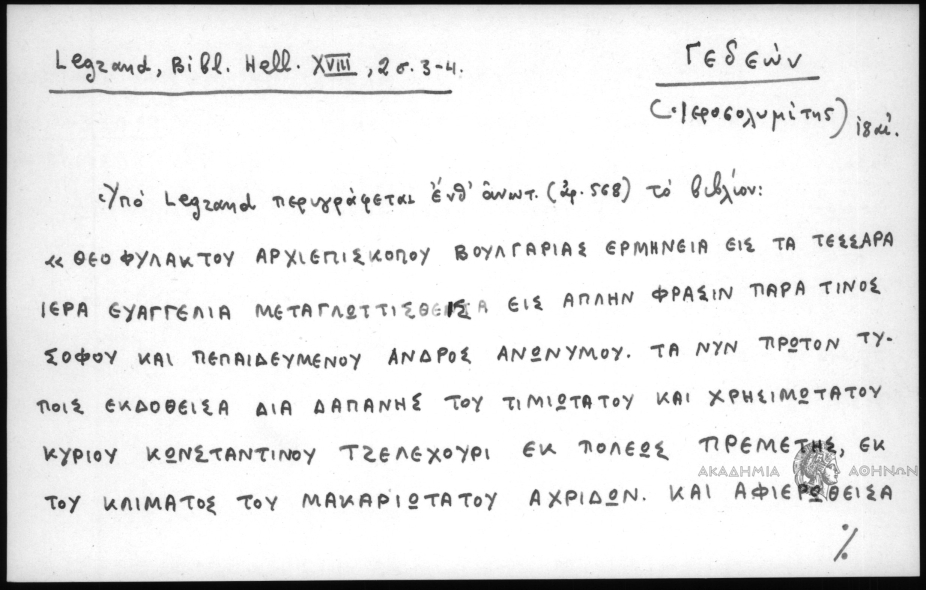 Legrand, Bibl. Hell. XVIII, 2 σ. 3-4.
Γεδεών
(Ἱεροσολυμίτης) 18 αἰ.
Ὑπό Legrand περιγράφεται ἔνθ' ἄνωτ. (ἀρ. 568) τό βιβλίον:
« ΘΕΟΦΥΛΑΚΤΟΥ ΑΡΧΙΕΠΙΣΚΟΠΟΥ ΒΟΥΛΓΑΡΙΑΣ ΕΡΜΗΝΕΙΑ ΕΙΣ ΤΑ ΤΕΣΣΑΡΑ
ΙΕΡΑ ΕΥΑΓΓΕΛΙΑ ΜΕΤΑΓΛΩΤΤΙΣΘΕΙΣΑ ΕΙΣ ΑΠΛΗΝ ΦΡΑΣΙΝ ΠΑΡΑ ΤΙΝΟΣ
ΣΟΦΟΥ ΚΑΙ ΠΕΠΑΙΔΕΥΜΕΝΟΥ ΑΝΔΡΟΣ ΑΝΩΝΥΜΟΥ. ΤΑ ΝΥΝ ΠΡΩΤΟΝ ΤΥ-
ΠΟΙΣ ΕΚΔΟΘΕΙΣΑ ΔΙΑ ΔΑΠΑΝΗΣ ΤΟΥ ΤΙΜΙΩΤΑΤΟΥ ΚΑΙ ΧΡΗΣΙΜΩΤΑΤΟΥ
ΚΥΡΙΟΥ ΚΩΝΣΤΑΝΤΙΝΟΥ ΤΖΕΛΕΧΟΥΡΙ ΕΚ ΠΟΛΕΩΣ ΠΡΕΜΕΤΗΣ, ΕΚ
ΑΚΑΔΗΜΙΑ ΑΘΗΝΩΝ
ΤΟΥ ΚΛΙΜΑΤΟΣ ΤΟΥ ΜΑΚΑΡΙΩΤΑΤΟΥ ΑΧΡΙΔΩΝ. ΚΑΙ ΑΦΙΕΡΩΘΕΙΣΑ
%